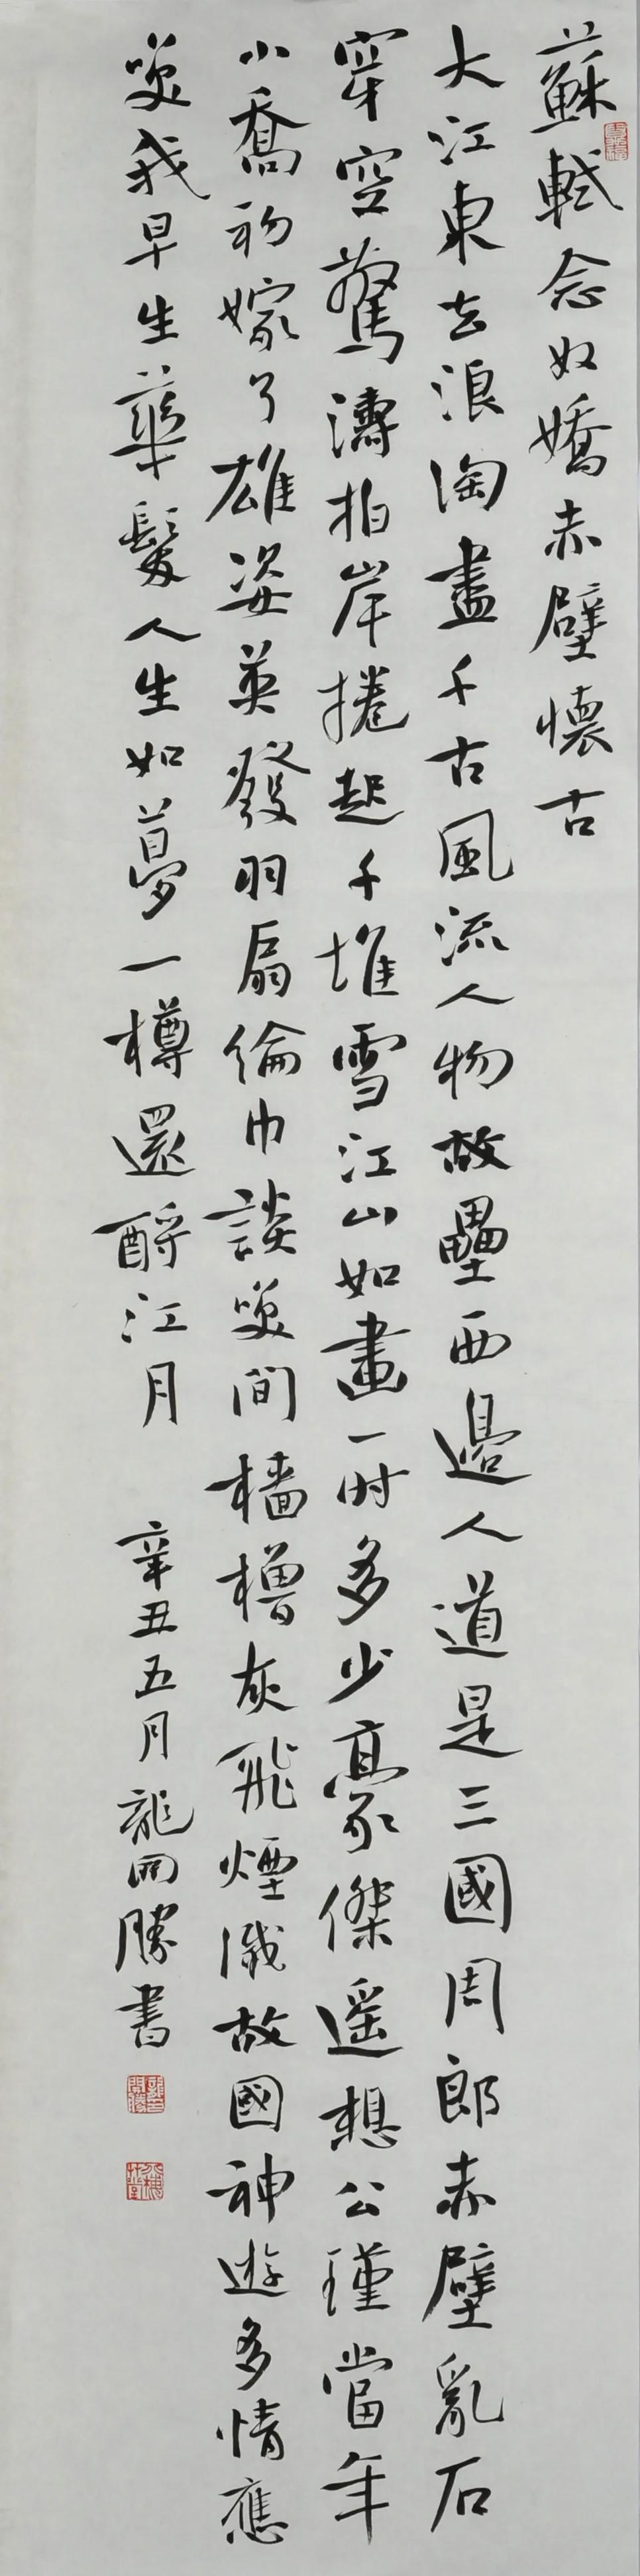 蘇軾念奴嬌赤壁懷古
大江東去浪淘盡千古風流人物故壘西邊人道是三國周郎赤壁亂石
穿空驚濤拍岸捲起千堆雪江山如畫一時多少豪傑遙想公瑾當年
小喬初嫁了雄姿英發羽扇綸巾談笑間檣櫓灰飛煙滅故國神遊多情應
笑我早生華髮人生如夢一樽還酹江月 辛丑五月龍開勝書